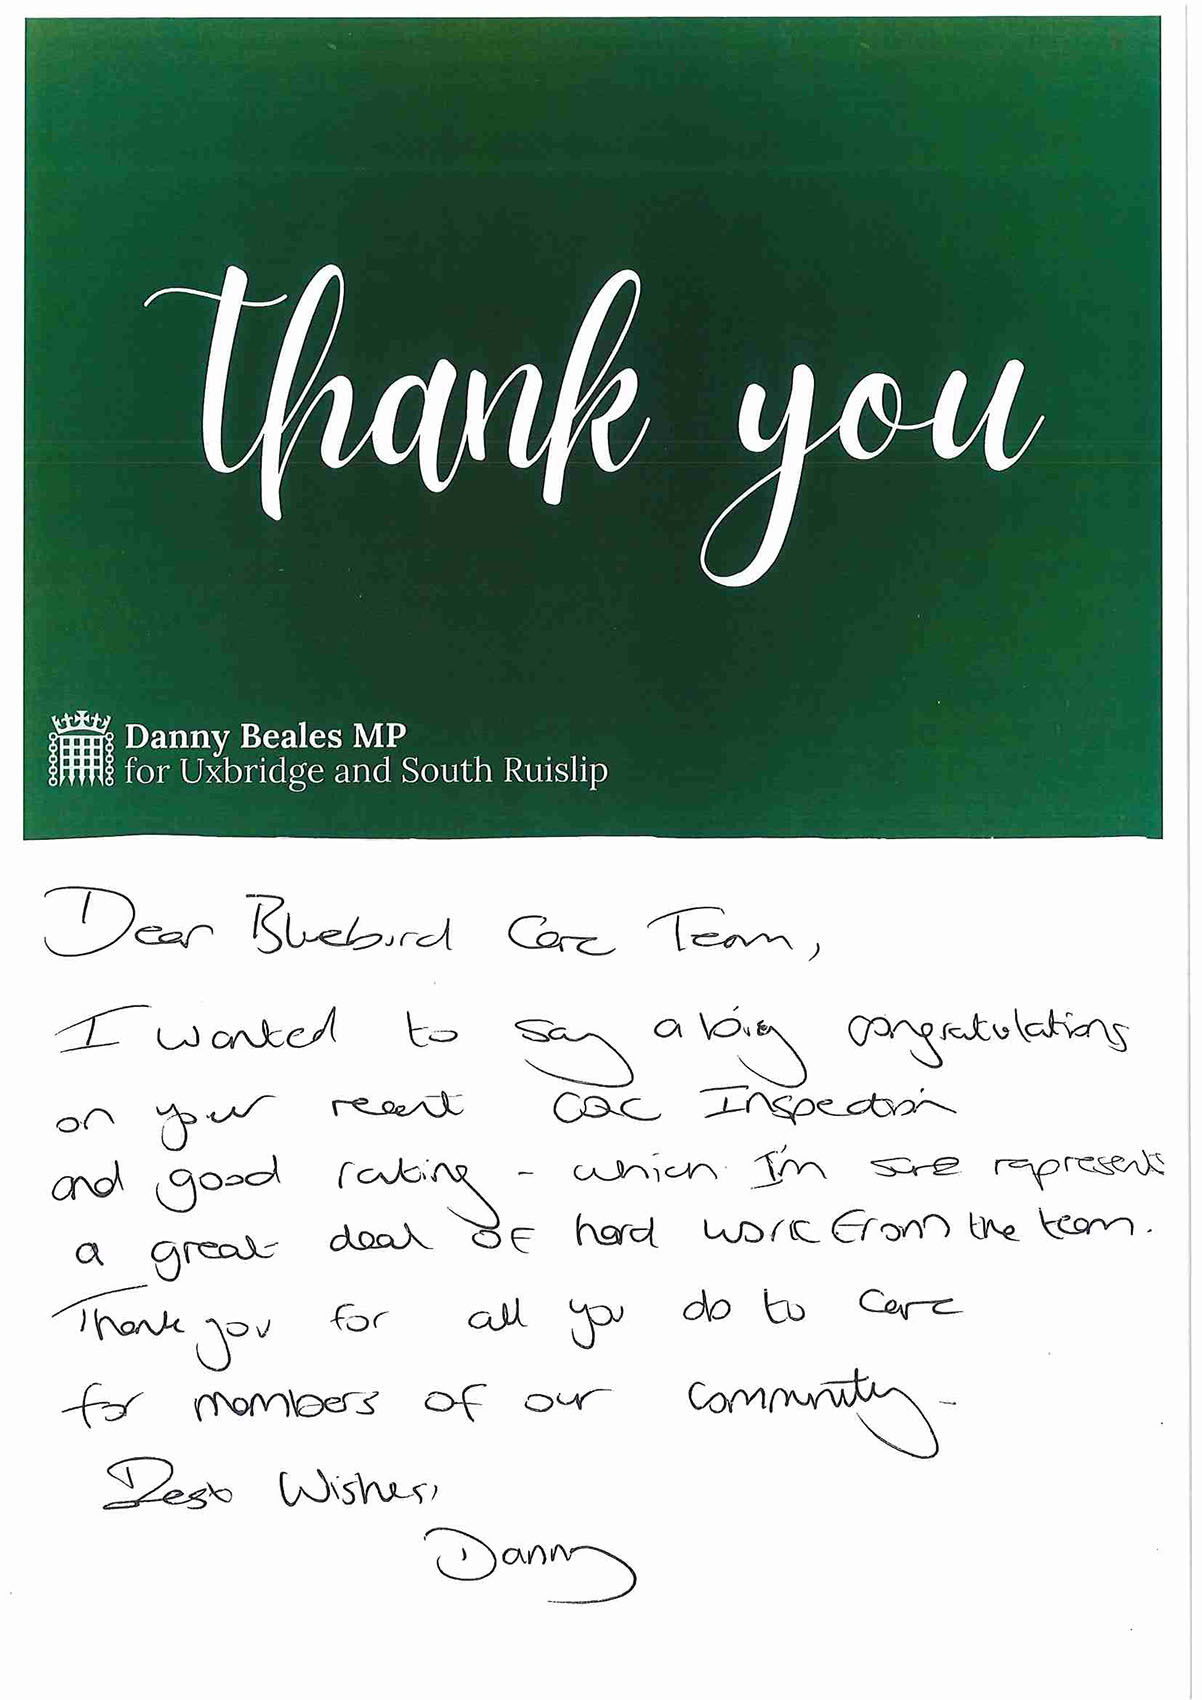 thank you
Danny Beales MP
for Uxbridge and South Ruislip
Dear Bluebird Care Team,
I wanted to say a big congratulations
on your recent CQC Inspection
and good rating - which I'm sure represents
a great deal of hard work from the team.
Thank you for all you do to care
for members of our community.
Best Wishes,
Danny